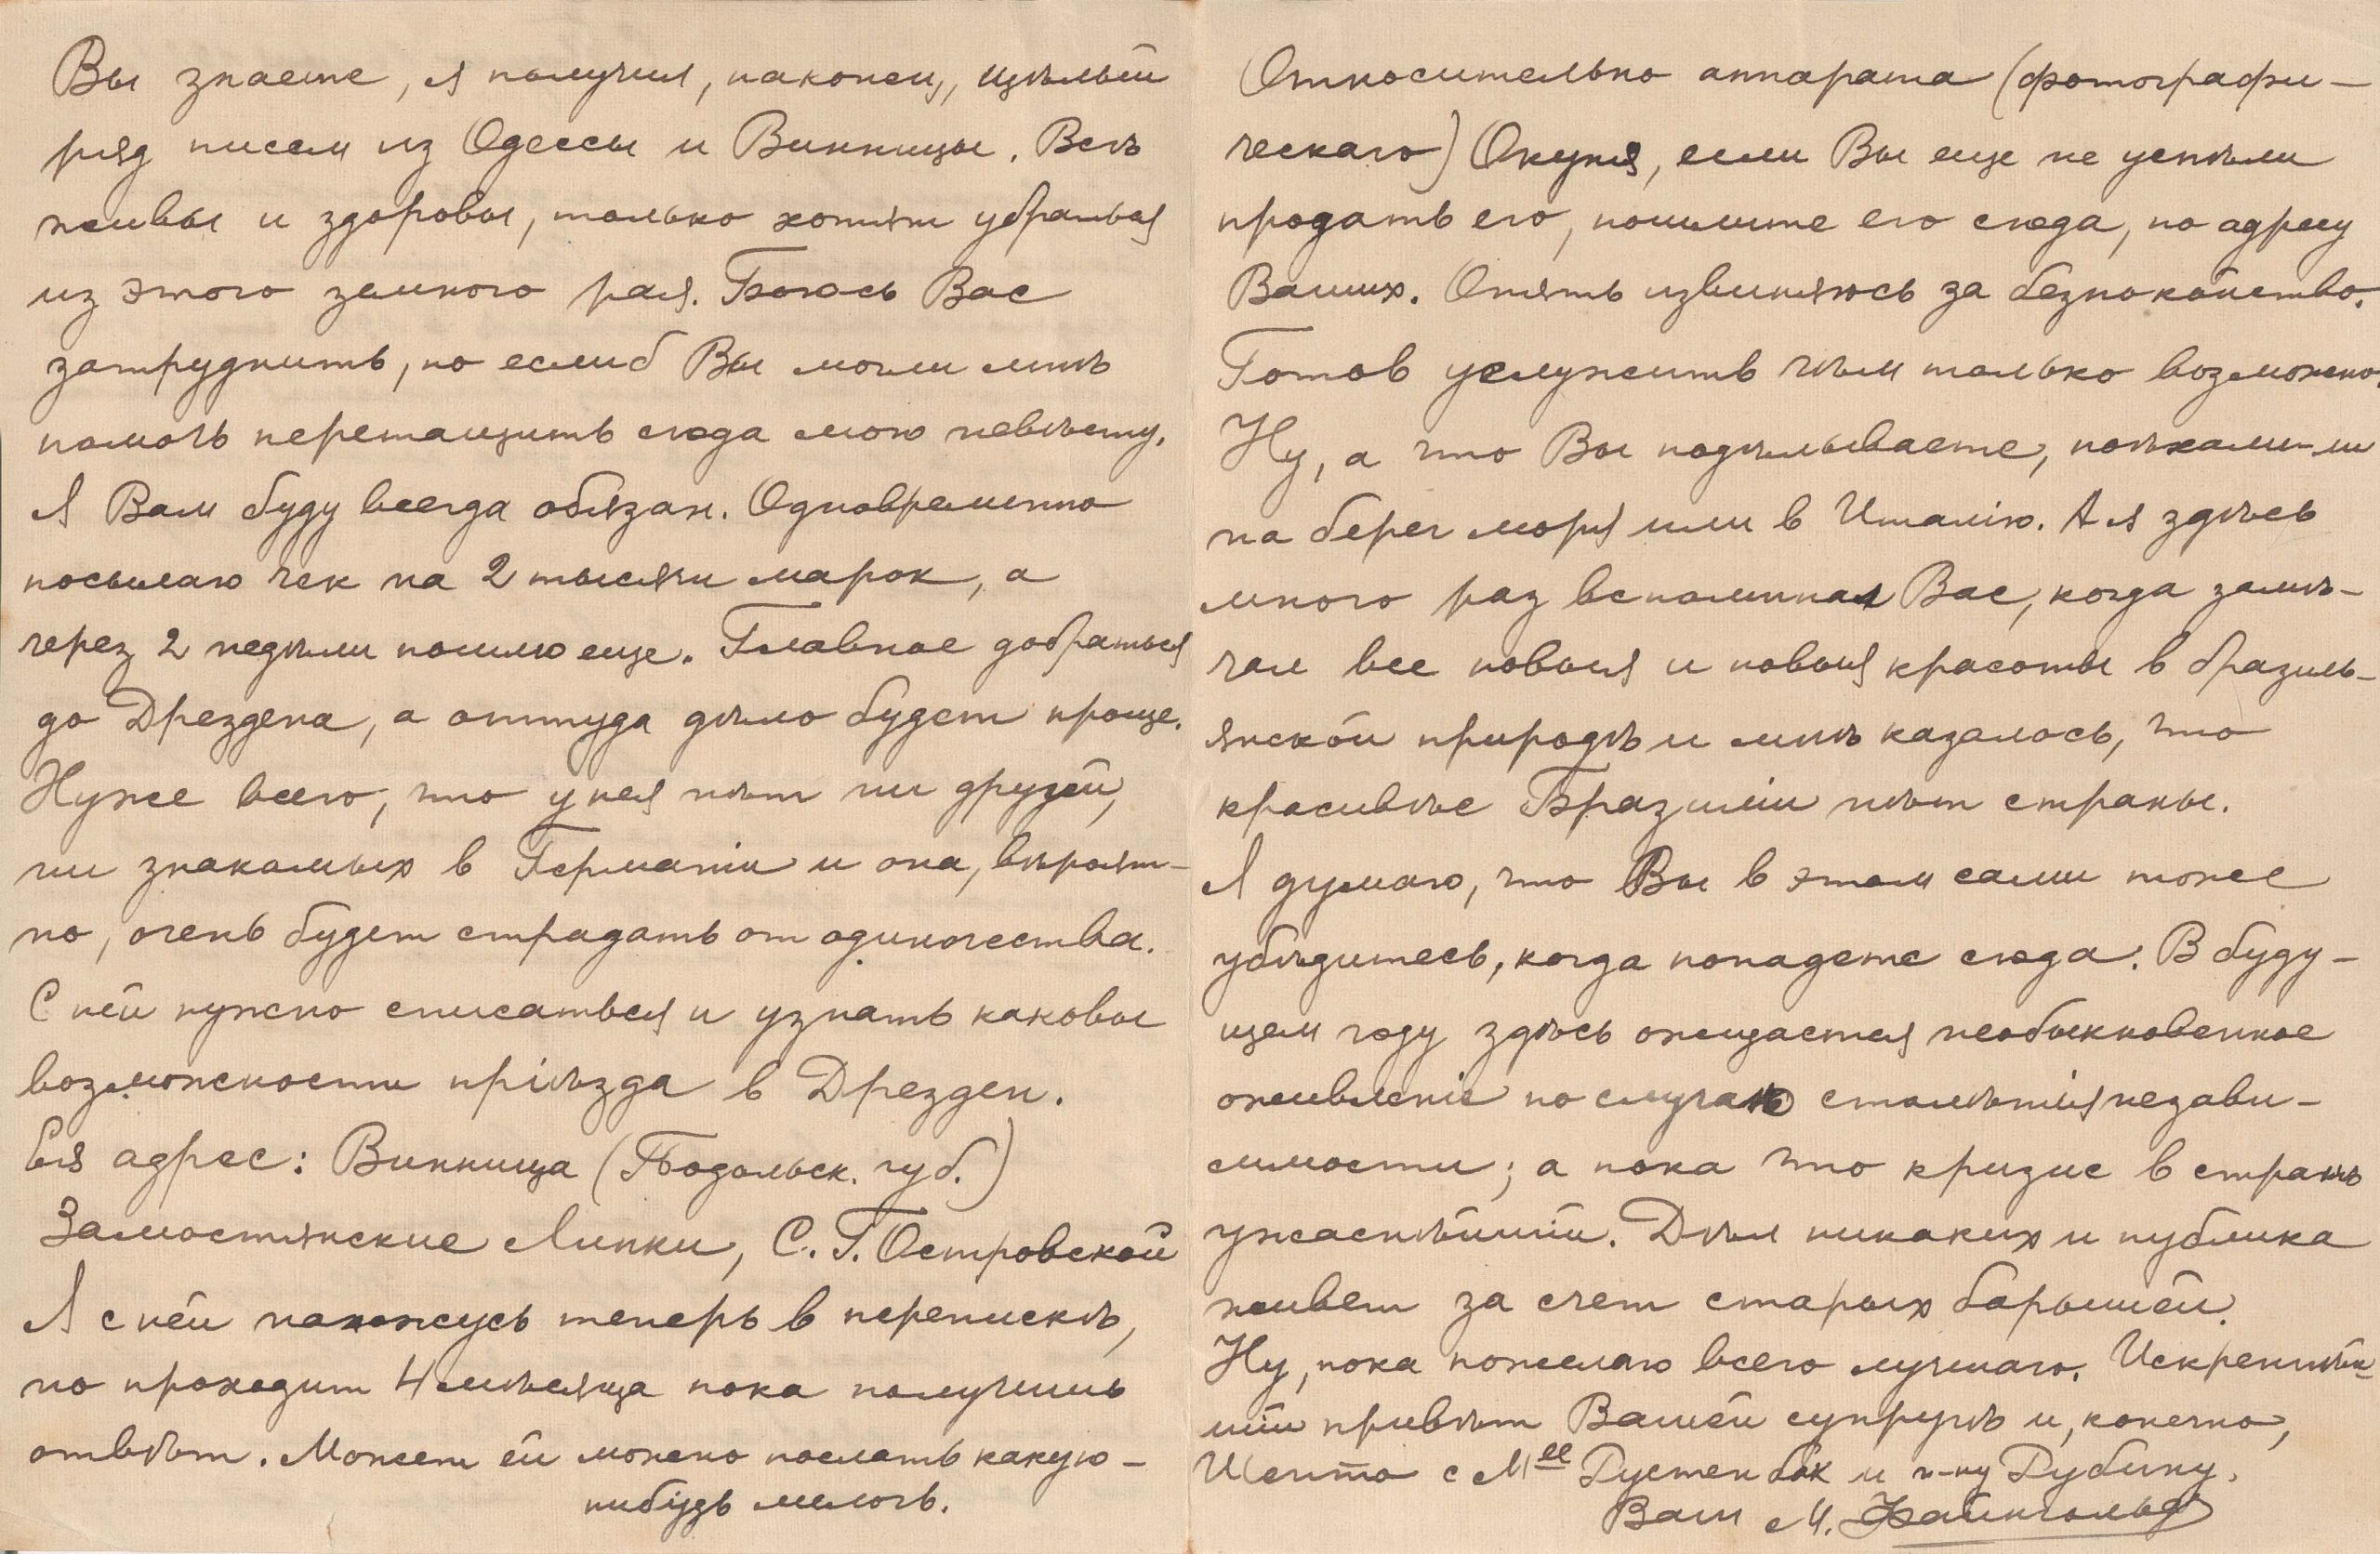 Вы знаете, я получил, наконец, цѣлый
ряд писем из Одессы и Винницы. Всѣ
живы и здоровы, только хотят убраться
из этого земного рая. Боюсь Вас
затруднить, но еслиб Вы могли мнѣ
помочь перетащить сюда мою невѣсту.
Я Вам буду всегда обязан. Одновременно
посылаю чек на 2 тысячи марок, а
через 2 недѣли пошлю еще. Главное добраться
до Дрездена, а оттуда дѣло будет проще.
Хуже всего, что у нея нѣт ни друзей,
ни знакомых в Германіи и она, вѣроят-
но, очень будет страдать от одиночества.
С ней нужно списаться и узнать каковы
возможности пріѣзда в Дрезден.
Ея адрес: Винница (Подольск. губ.)
Замостянские Липки, С. Г. Островской
Я с ней нахожусь теперь в перепискѣ,
но проходит 4 мѣсяца пока получишь
отвѣт. Может ей можно послать какую-
нибудь мелочь.
Относительно аппарата (фотографи-
ческаго) Окуня, если Вы еще не успѣли
продать его, пошлите его сюда, по адресу
Ваших. Опять извиняюсь за безпокойство.
Готов услужить чѣм только возможно.
Ну, а что Вы подѣлываете, поѣхали-ли
на берег моря или в Италію. А я здѣсь
много раз вспоминал Вас, когда замѣ-
чал все новыя и новыя красоты в бразиль-
янской природѣ и мнѣ казалось, что
красивѣе Бразиліи нѣт страны.
Я думаю, что Вы в этом сами тоже
убѣдитесь, когда попадете сюда. В буду-
щем году здѣсь ожидается необыкновенное
оживленіе по случаю столѣтія незави-
симости; а пока что кризис в странѣ
ужаснѣйшій. Дѣл никаких и публика
живет за счет старых барышей.
Ну, пока пожелаю всего лучшаго. Искреннѣй-
шій привѣт Вашей супругѣ и, конечно,
с Mlle и г-ну Рубину.
Ваш М. Файнгольд